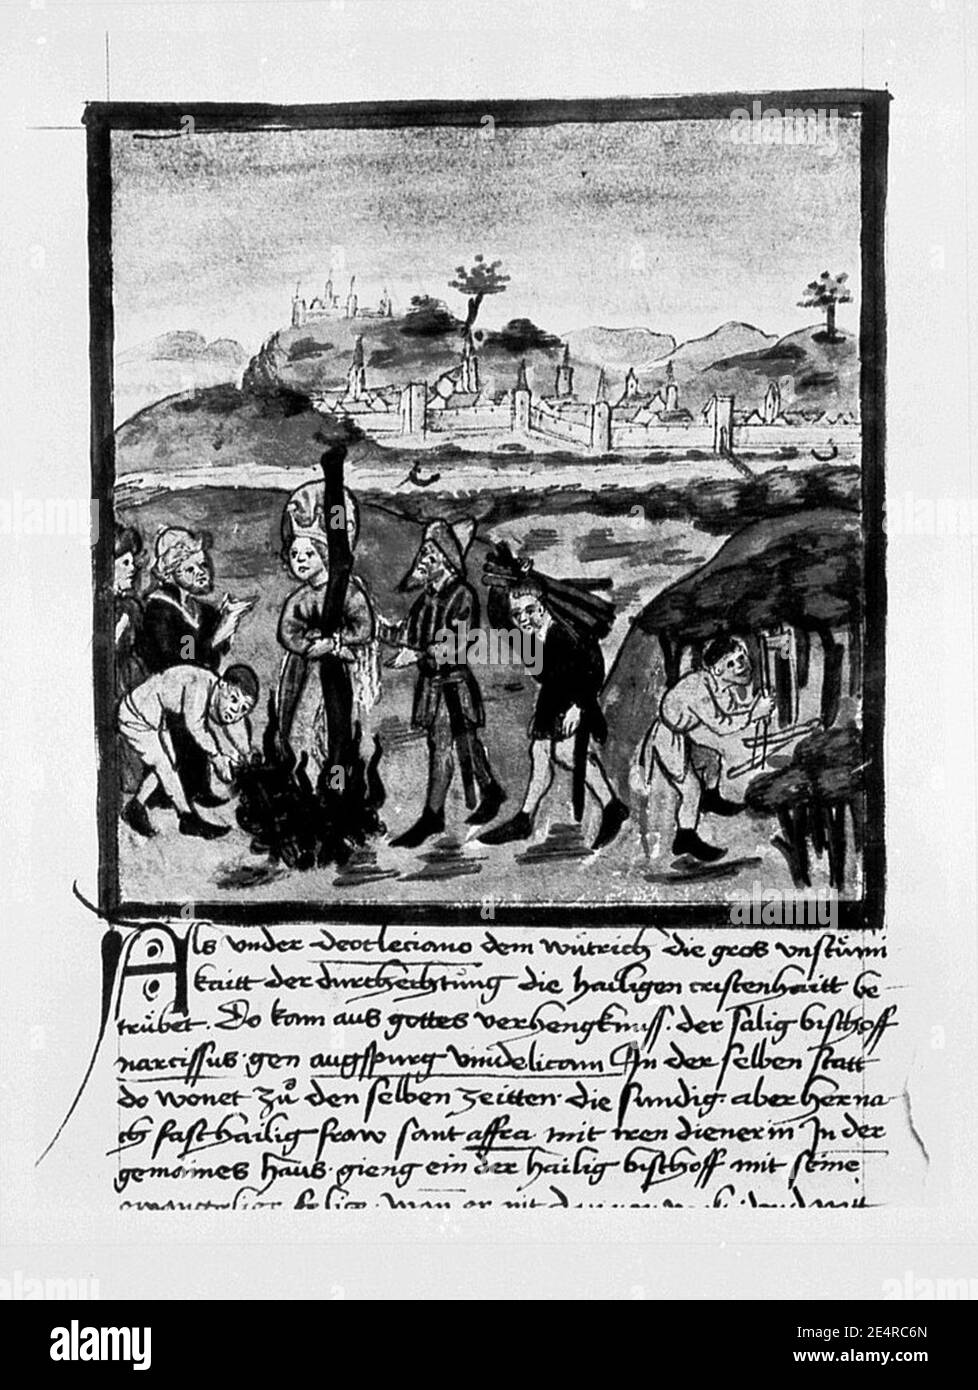 Als vnder deotleciano dem wütrich die gros vnstümi
kaitt der durchechtung die hailigen cristenhaitt be-
trübet. Do kam aus gottes verhengknuss. der salig bischoff
narcissus. gen augspurg vindelicam In der selben statt
do wonet zů den selben zeitten. die sundig. aber herna
ch fast hailig fraw sant affra mit iren dienerin In der
gemaines haus. gieng ein der hailig bischoff mit seine
alamy
Image ID: 2E4RC6N
www.alamy.com